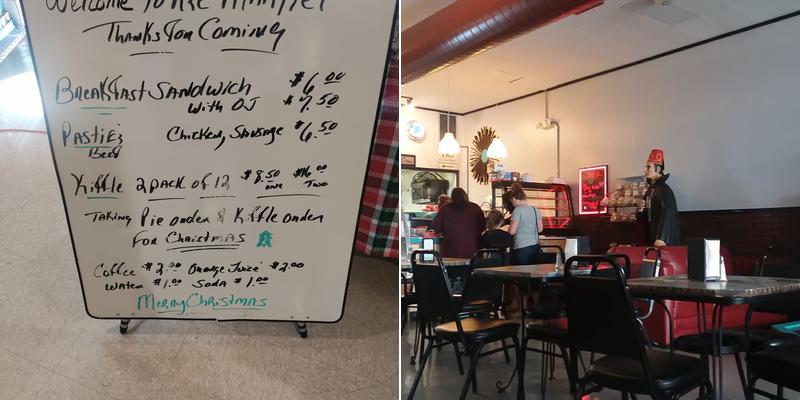 Welcome To The
Thanks You Coming
Breakfast Sandwich $6.00
with OJ $7.50
Pasties Chicken, Sausage $6.50
Beef
Kiffle 2 pack of 12 $8.50 $16.00
one Two
Taking Pie order & Kiffle order
For Christmas
Coffee $2.00 Orange Juice $2.00
Water $1.00 Soda $1.00
Merry Christmas